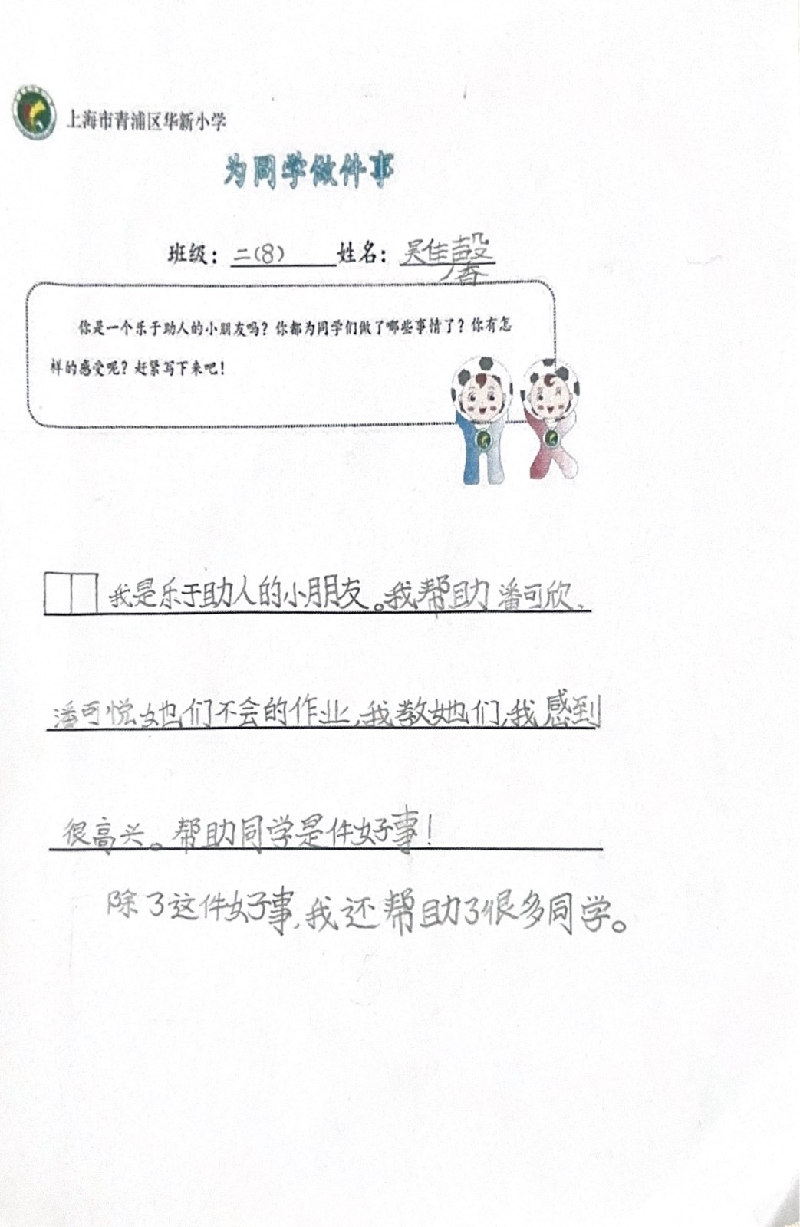 上海市青浦区华新小学
为同学做件事
班级：二(8) 姓名：吴佳馨
你是一个乐于助人的小朋友吗？你都为同学们做了哪些事情了？你有怎
样的感受呢？赶紧写下来吧！
我是乐于助人的小朋友。我帮助潘可欣、
潘可悦她们不会的作业，我教她们，我感到
很高兴。帮助同学是件好事！
除了这件好事，我还帮助了很多同学。